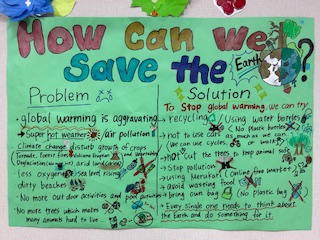 How Can We
Save the Earth?
Problem
Solution
To Stop global warming, we can try
global warming is aggravating
→ Super hot weather / air pollution
Climate change disturb growth of crops
Tornado, forest fire
less oxygen, sea level rising
dirty beaches
No more out door activities and
No more trees which makes
many animals hard to live
→ recycling / Using water bottles
No plastic bottles
→ not to use cars as much as we can
(we can use cycles, or walk)
→ not cut the trees to keep animals safe
→ Stop pollution
→ using Mercari (Online free market)
→ avoid wasting food
→ bring our own bag (No plastic bag)
→ Every single one needs to think about
the Earth and do something for it.